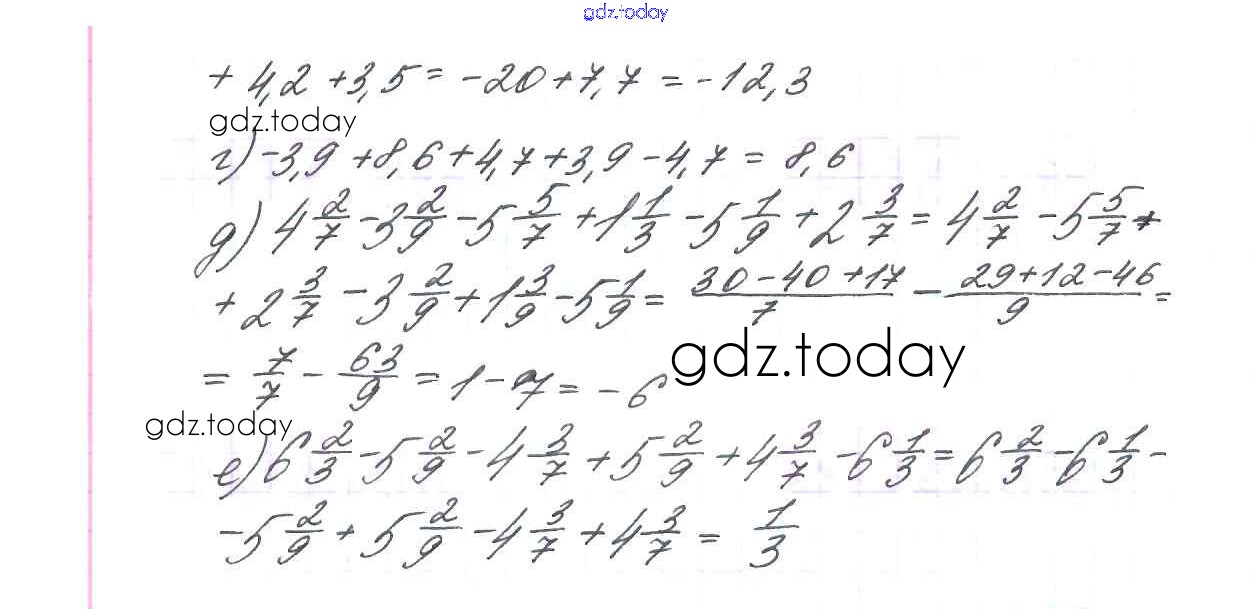 gdz.today
+ 4,2 + 3,5 = -20 + 7,7 = -12,3
gdz.today
г) -3,9 + 8,6 + 4,7 + 3,9 - 4,7 = 8,6
д) 4 2/7 - 3 2/9 - 5 5/7 + 1 1/3 - 5 1/9 + 2 3/7 = 4 2/7 - 5 5/7 +
+ 2 3/7 - 3 2/9 + 1 3/9 - 5 1/9 = (30 - 40 + 17)/7 - (29 + 12 - 46)/9 =
gdz.today
= 7/7 - 63/9 = 1 - 7 = -6
gdz.today
е) 6 2/3 - 5 2/9 - 4 3/7 + 5 2/9 + 4 3/7 - 6 1/3 = 6 2/3 - 6 1/3 -
- 5 2/9 + 5 2/9 - 4 3/7 + 4 3/7 = 1/3